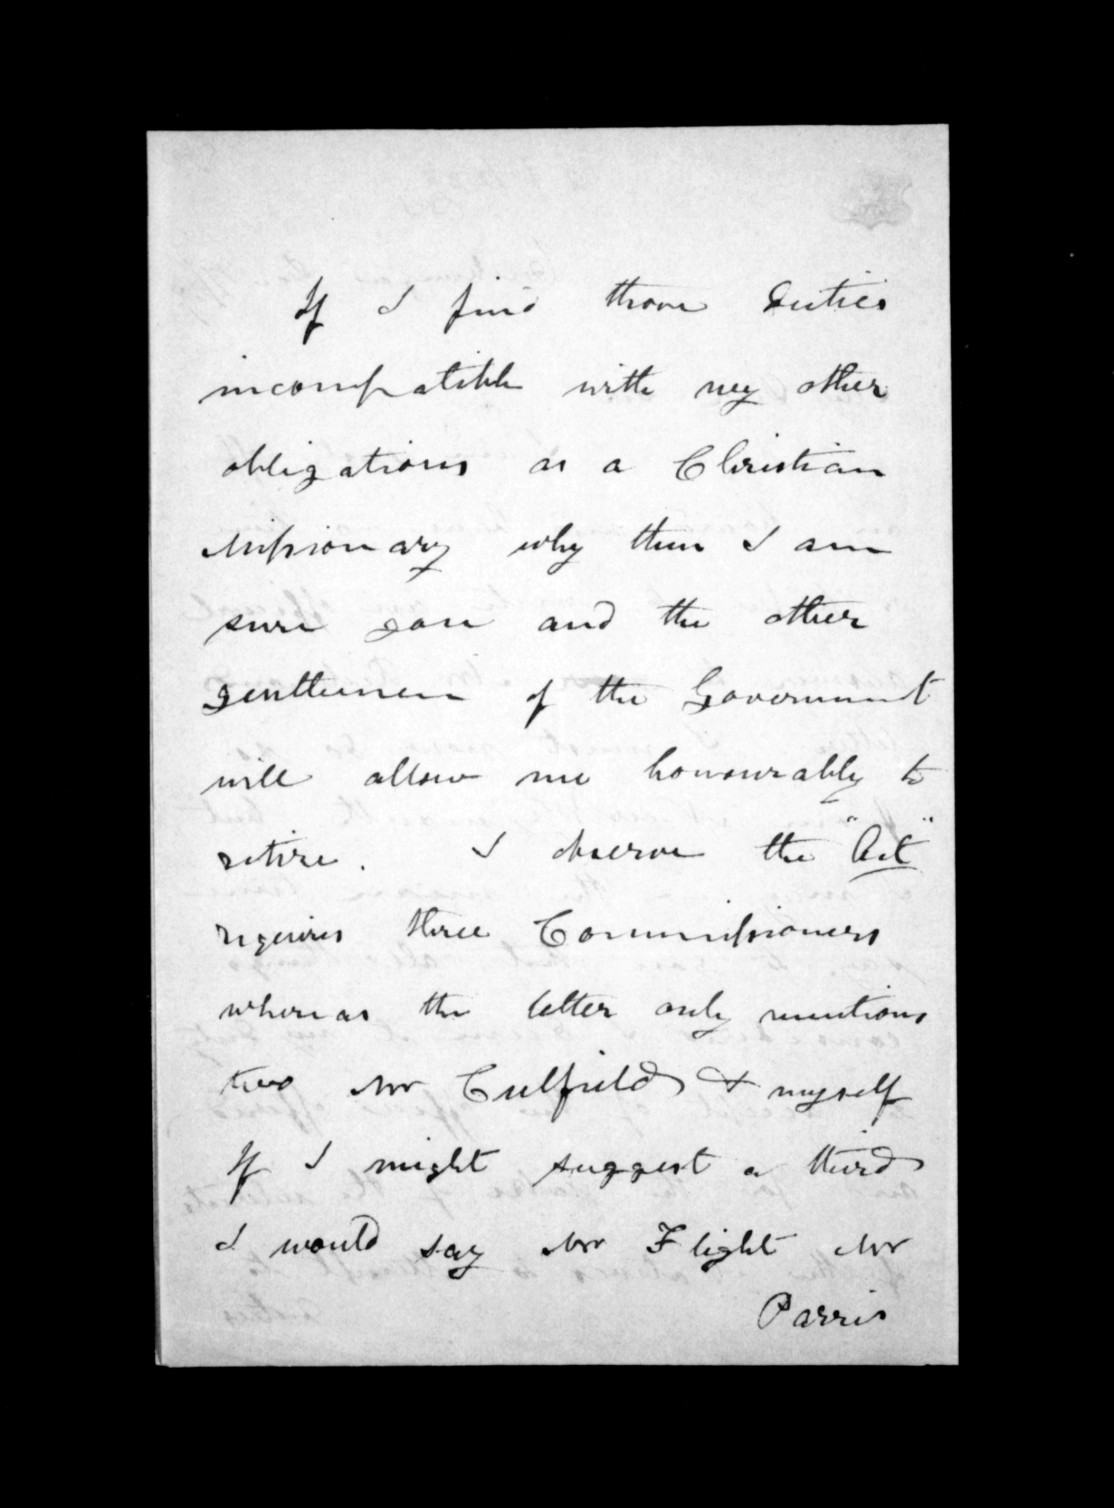 If I find those duties
incompatible with my other
obligations as a Christian
Missionary why then I am
sure you and the other
gentlemen of the Government
will allow me honourably to
retire. I observe the "Act"
requires three Commissioners
whereas the letter only mentions
two Mr Cutfield & myself
If I might suggest a third
I would say Mr Flight Mr
Parris